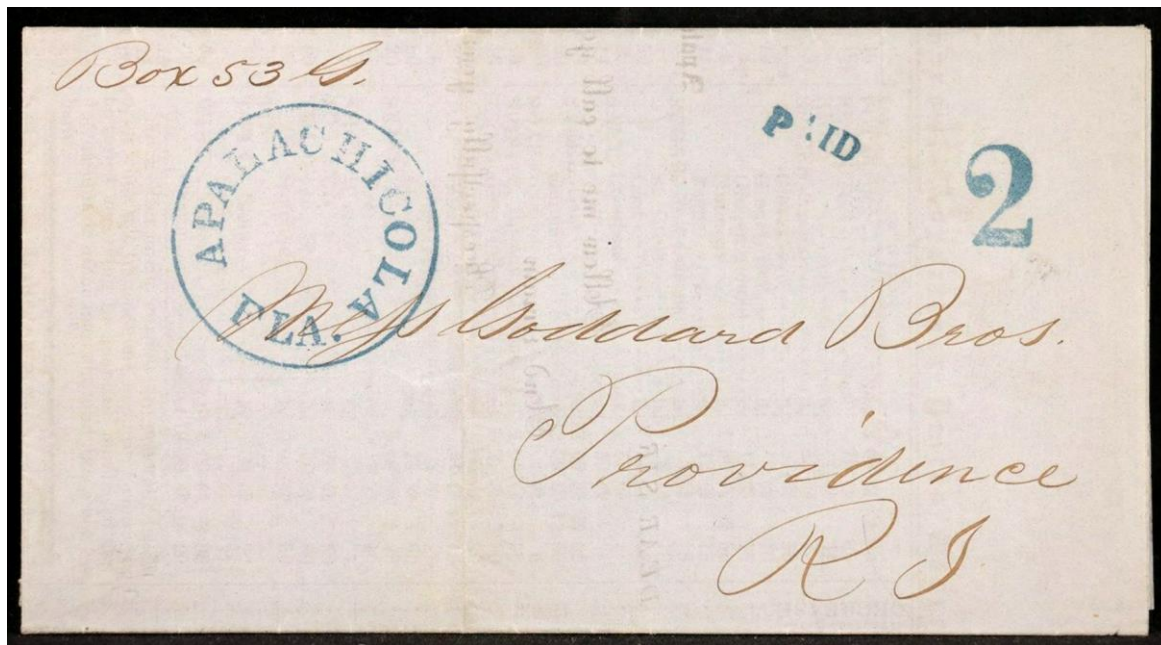 Box 53 G.
APALACHICOLA
FLA.
PAID
2
Mess Goddard Bros.
Providence
R I